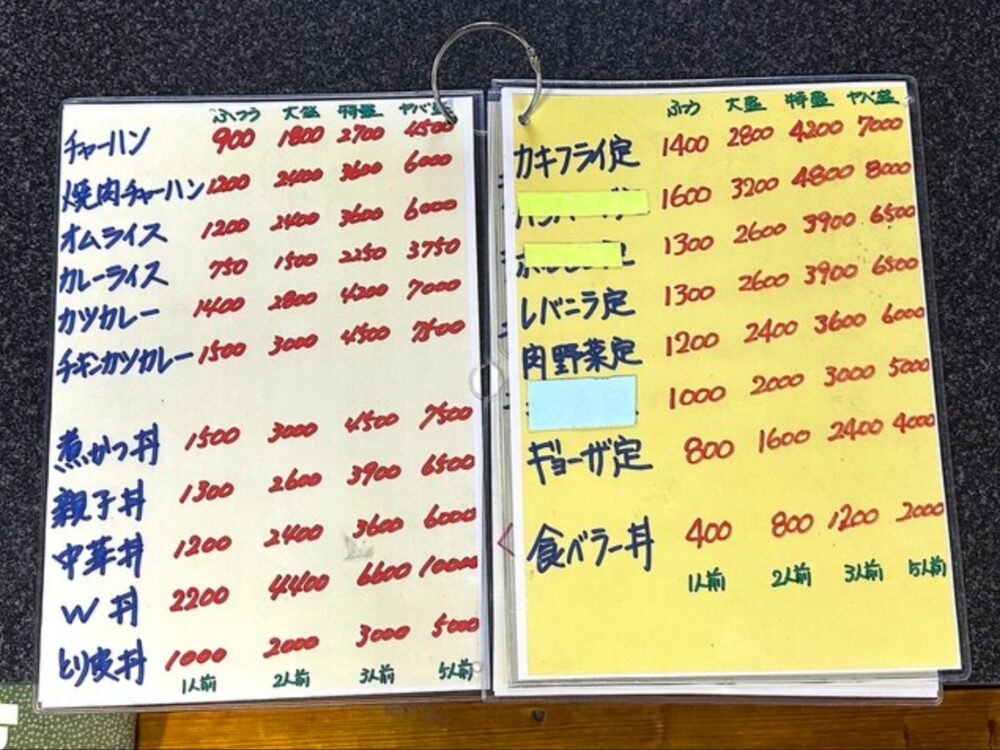 ふつう 大盛 特盛 ヤベ盛
チャーハン 900 1800 2700 4500
焼肉チャーハン 1200 2400 3600 6000
オムライス 1200 2400 3600 6000
カレーライス 750 1500 2250 3750
カツカレー 1400 2800 4200 7000
チキンカツカレー 1500 3000 4500 7500
煮かつ丼 1500 3000 4500 7500
親子丼 1300 2600 3900 6500
中華丼 1200 2400 3600 6000
W丼 2200 4400 6600 10000
とり皮丼 1000 2000 3000 5000
1人前 2人前 3人前 5人前
ふつう 大盛 特盛 ヤベ盛
カキフライ定 1400 2800 4200 7000
1600 3200 4800 8000
1300 2600 3900 6500
レバニラ定 1300 2600 3900 6500
肉野菜定 1200 2400 3600 6000
1000 2000 3000 5000
ギョーザ定 800 1600 2400 4000
食べラー丼 400 800 1200 2000
1人前 2人前 3人前 5人前